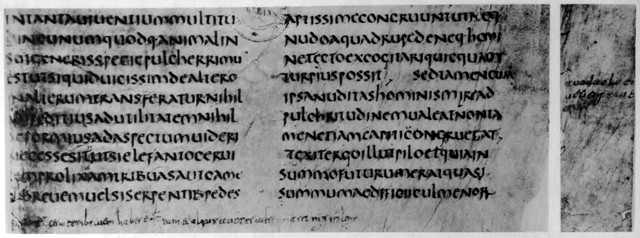 INTANTAUIUENTIUMMULTITU
DINEUNUMQUODQ·ANIMALIN
SUIGENERISSPECIEPULCHERRIMU
ESTUTSIQUIDUICISSIMDEALTERO
INALTERUMTRANSFERATURNIHIL
PEDITIUSADUTILITATEMNIHIL
DEFORMIUSADASPECTUMUIDERI
NECESSESITUTSIELEFANTOCERUI
CEMPROLIXAMTRIBUASAUTCAME
LOBREUEMUELSISERPENTIB·PEDES
APTISSIMECONGRUUNTUTNEQ
NUDOAQUADRUPEDENEQ·HOMI
NETECTOEXCOGITARIQUICQUAM
TURPIUSPOSSIT SEDTAMENCUM
IPSANUDITASHOMINISMIREAD
PULCHRITUDINEMUALEATNONTA
MENETIAMCAPITICONGRUEBAT
TEXITERGOILLUTPILOETQUIAIN
SUMMOFUTURUMERATQUASI
SUMMUMAEDIFICIICULMENORN